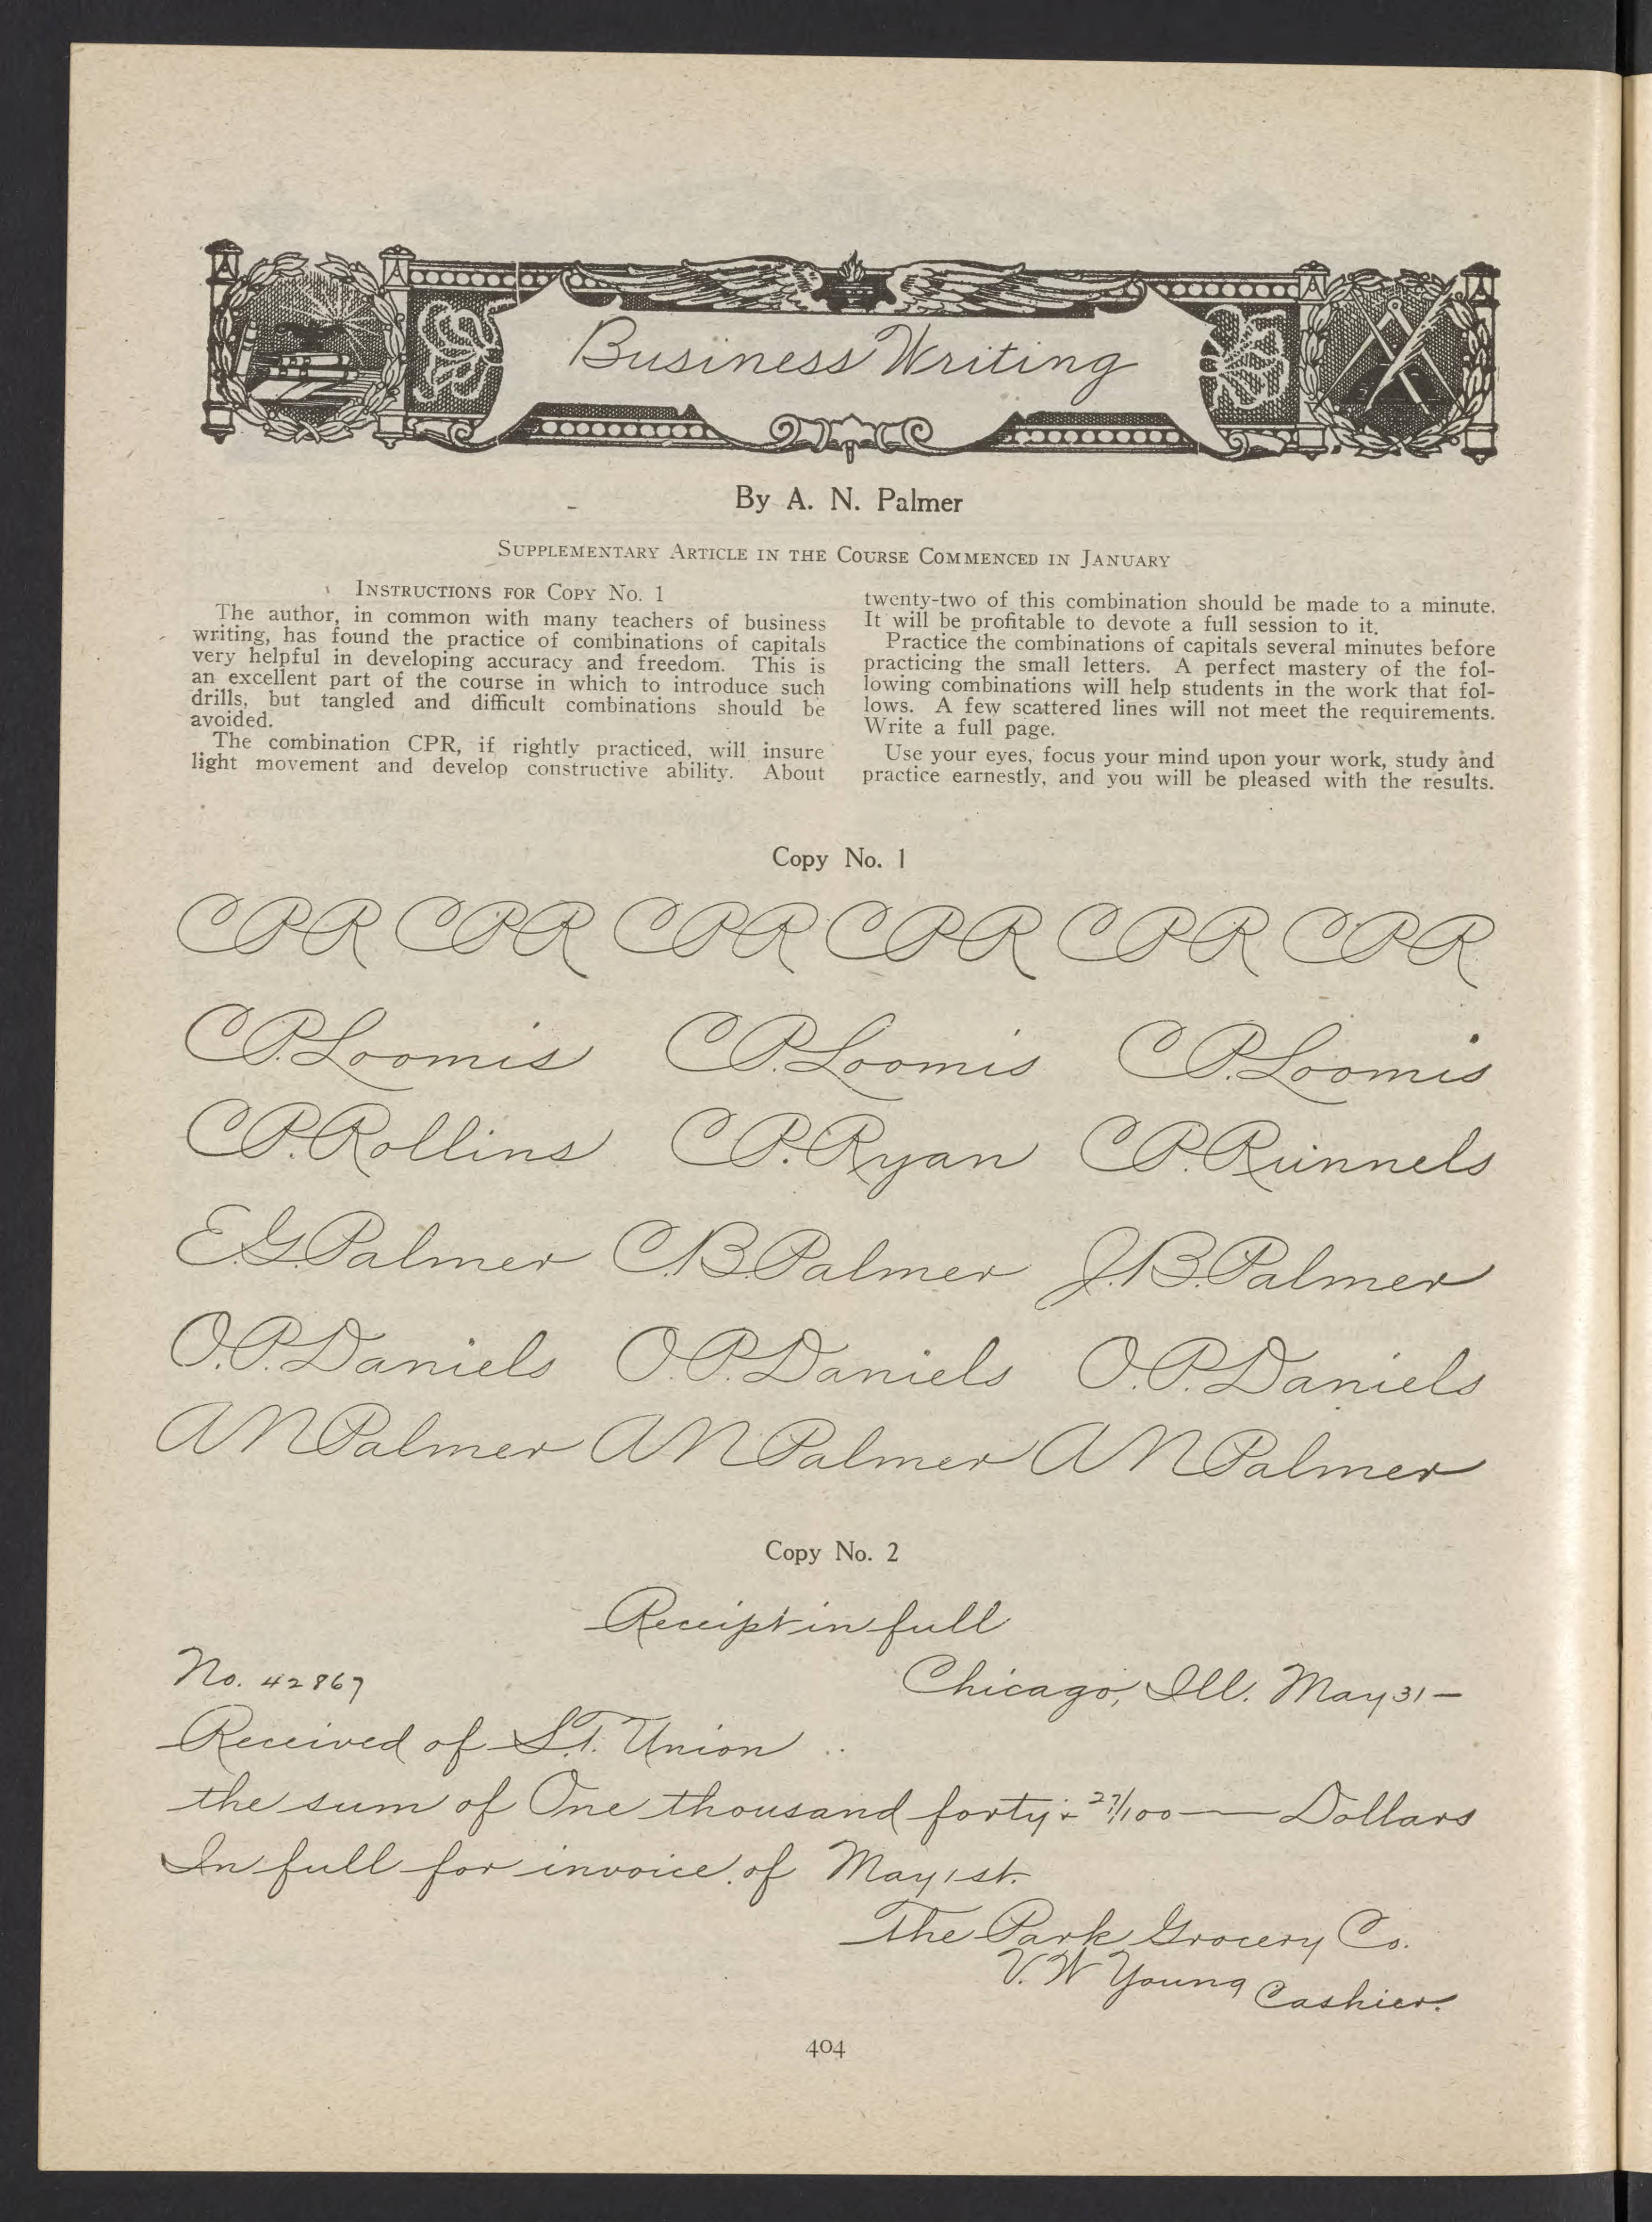 Business Writing
By A. N. Palmer
Supplementary Article in the Course Commenced in January
Instructions for Copy No. 1
The author, in common with many teachers of business
writing, has found the practice of combinations of capitals
very helpful in developing accuracy and freedom. This is
an excellent part of the course in which to introduce such
drills, but tangled and difficult combinations should be
avoided.
The combination CPR, if rightly practiced, will insure
light movement and develop constructive ability. About
twenty-two of this combination should be made to a minute.
It will be profitable to devote a full session to it.
Practice the combinations of capitals several minutes before
practicing the small letters. A perfect mastery of the fol-
lowing combinations will help students in the work that fol-
lows. A few scattered lines will not meet the requirements.
Write a full page.
Use your eyes, focus your mind upon your work, study and
practice earnestly, and you will be pleased with the results.
Copy No. 1
CPR CPR CPR CPR CPR CPR
C.P. Loomis C.P. Loomis C.P. Loomis
C.P. Rollins C.P. Ryan C.P. Runnels
E.G. Palmer C.B. Palmer J.B. Palmer
O.P. Daniels O.P. Daniels O.P. Daniels
A N Palmer A N Palmer A N Palmer
Copy No. 2
Receipt in full
No. 42867
Chicago, Ill. May 31—
Received of S.T. Union
the sum of One thousand forty & 27/100 — Dollars
In full for invoice of May 1st.
The Park Grocery Co.
V. W Young Cashier.
404